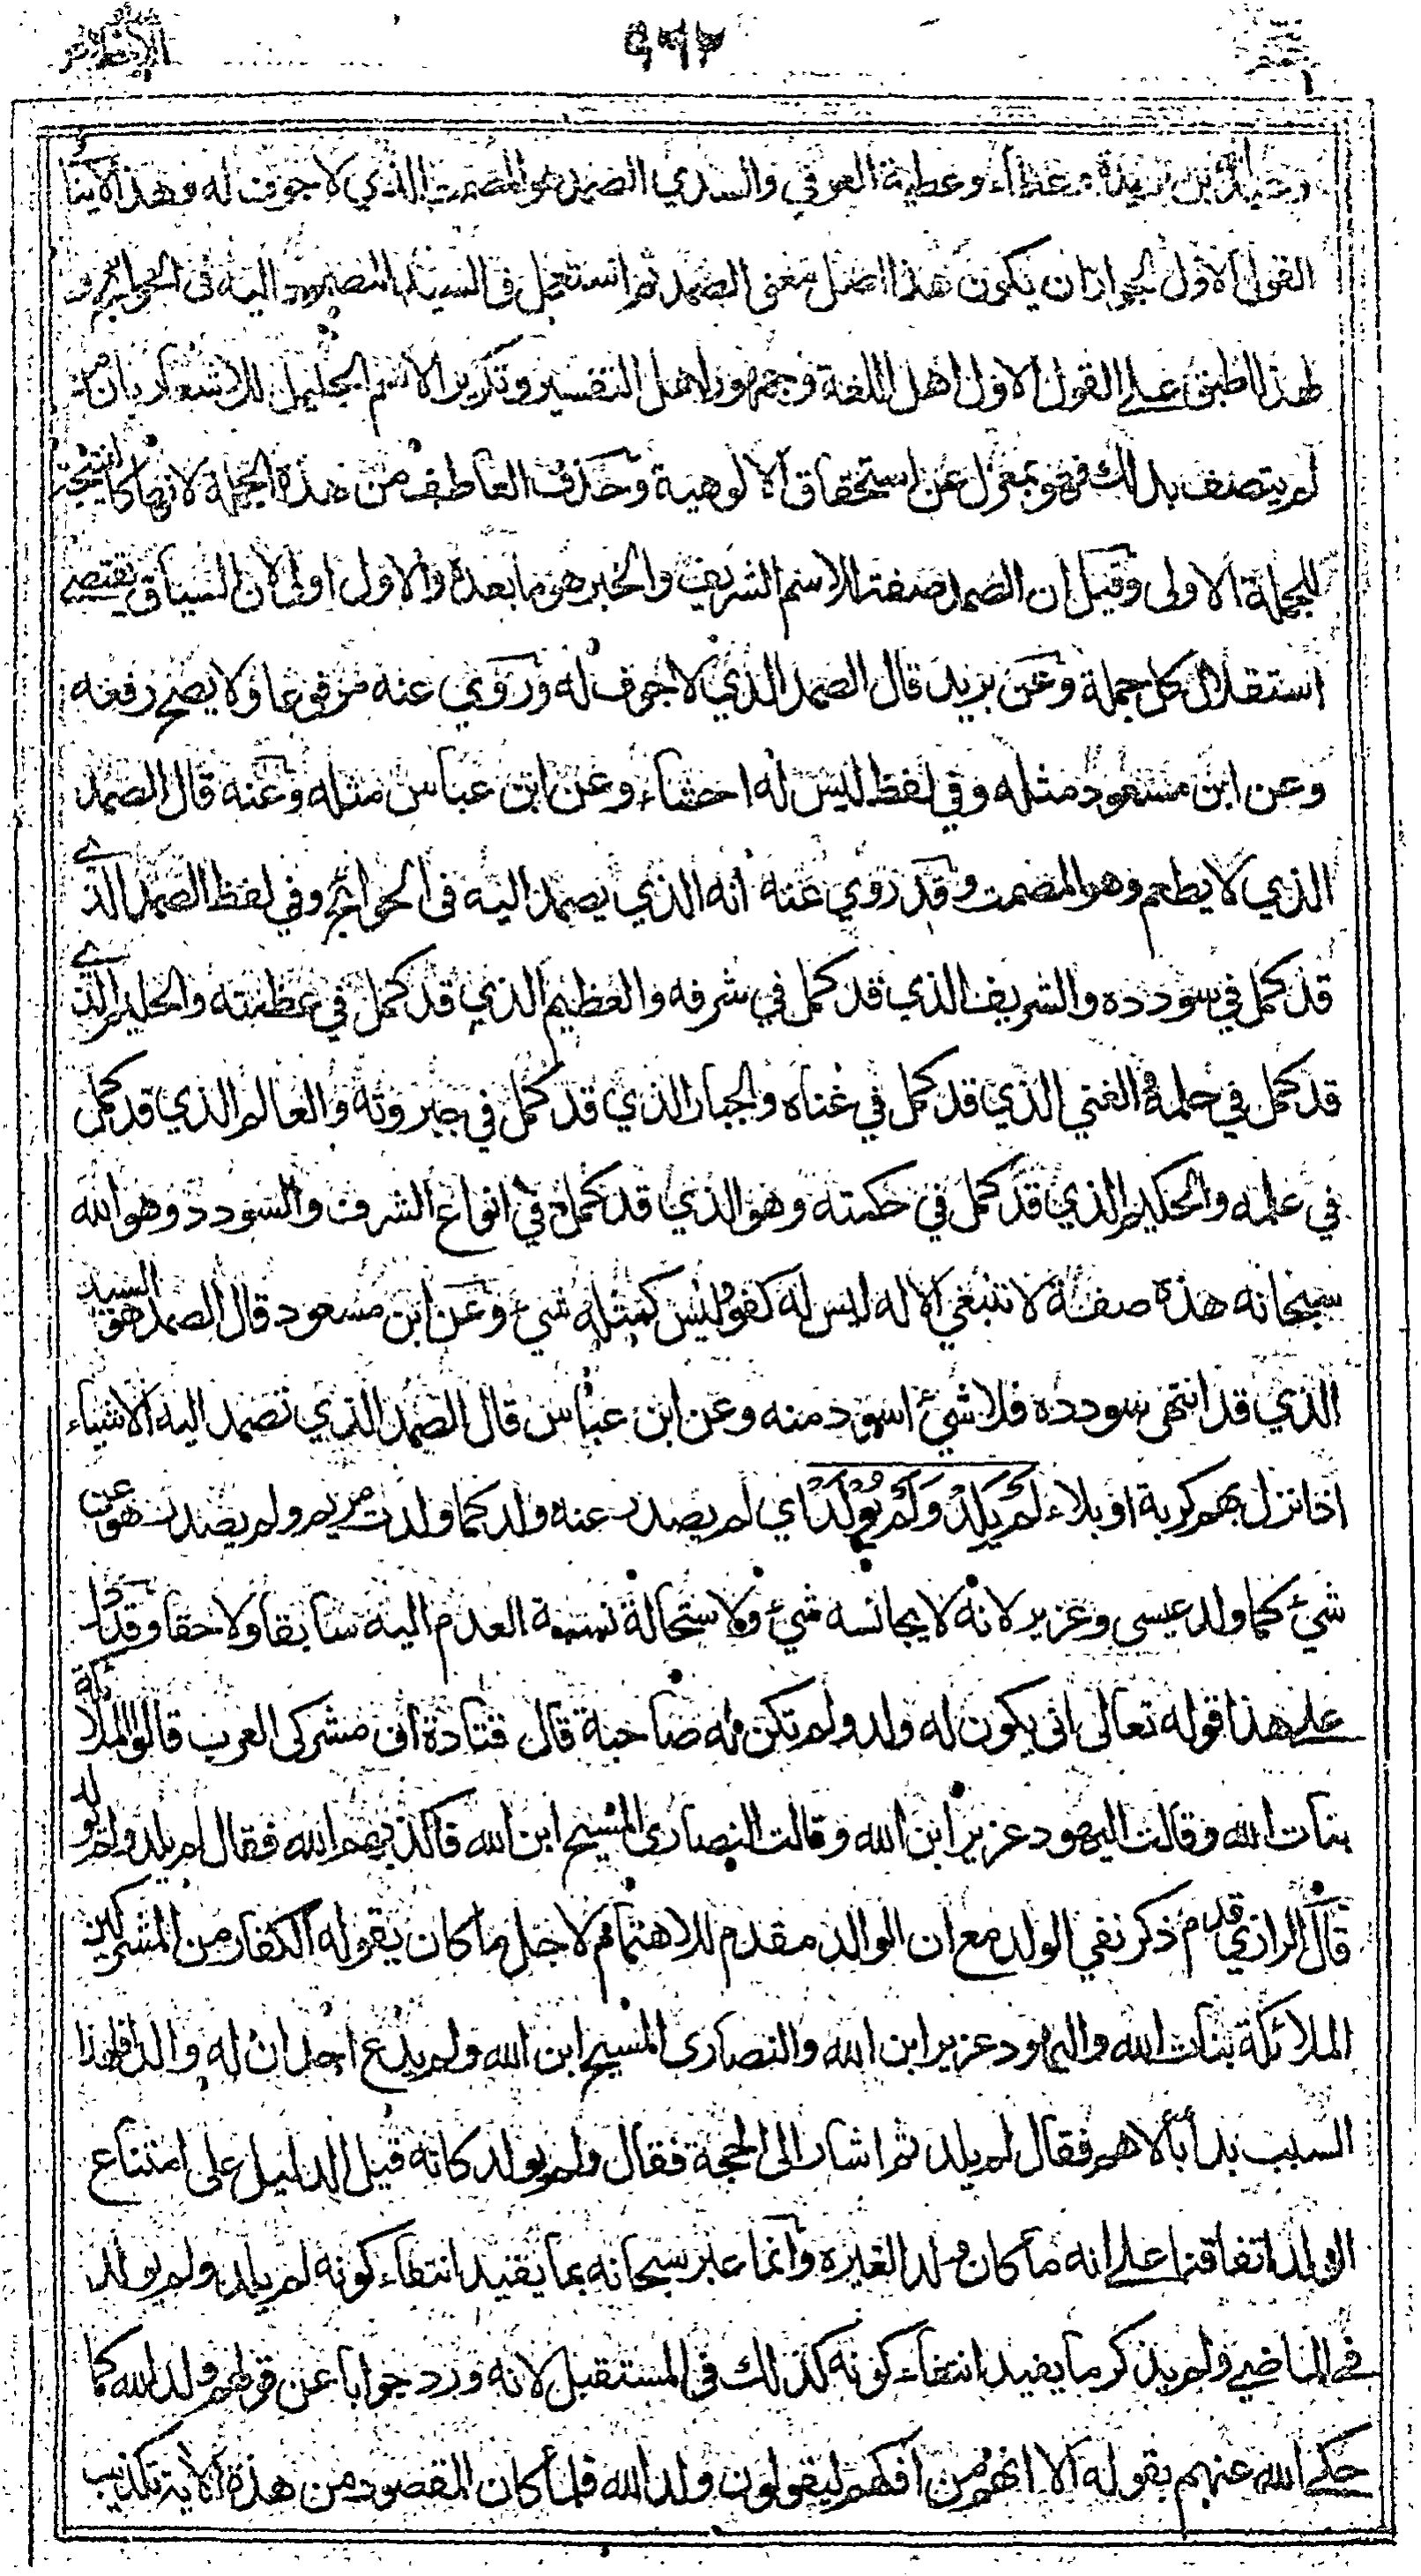 عم ٤٦٢ الإخلاص
وعبد الله بن بريدة وعطاء وعطية العوفي والسدي الصمد هو المصمت الذي لا جوف له وهذا لا ينا
القول الاول لجواز ان يكون هذا اصل معنى الصمد ثم استعمل في السيد المصمود اليه في الحوائج و
لهذا اطبق على القول الاول اهل اللغة وجمهور اهل التفسير وتكرير الاسم الجليل للاشعار بان من
لم يتصف بذلك فهو بمعزل عن استحقاق الالوهية وحذف العاطف من هذه الجملة لانها كالنتيجة
للجملة الاولى وقيل ان الصمد صفة للاسم الشريف والخبر هو ما بعده والاول اولى لان السياق يقتضي
استقلال كل جملة وعن بريدة قال الصمد الذي لا جوف له وروي عنه مرفوعا ولا يصح رفعه
وعن ابن مسعود مثله وفي لفظ ليس له احشاء وعن ابن عباس مثله وعنه قال الصمد
الذي لا يطعم وهو المصمت وقد روي عنه انه الذي يصمد اليه في الحوائج وفي لفظ الصمد الذي
قد كمل في سودده والشريف الذي قد كمل في شرفه والعظيم الذي قد كمل في عظمته والحليم الذي
قد كمل في حلمه والغني الذي قد كمل في غناه والجبار الذي قد كمل في جبروته والعالم الذي قد كمل
في علمه والحكيم الذي قد كمل في حكمته وهو الذي قد كمل في انواع الشرف والسودد وهو الله
سبحانه هذه صفة لا تنبغي الا له ليس له كفو وليس كمثله شيء وعن ابن مسعود قال الصمد هو السيد
الذي قد انتهى سودده فلا شيء اسود منه وعن ابن عباس قال الصمد الذي تصمد اليه الاشياء
اذا نزل بهم كربة او بلاء لَمْ يَلِدْ وَلَمْ يُوْلَدْ اي لم يصدر عنه ولد كما ولدت مريم ولم يصدر هو عن
شيء كما ولد عيسى وعزير لانه لا يجانسه شيء ولاستحالة نسبة العدم اليه سابقا ولاحقا وقد دل
على هذا قوله تعالى انى يكون له ولد ولم تكن له صاحبة قال قتادة ان مشركي العرب قالوا الملائكة
بنات الله وقالت اليهود عزير ابن الله وقالت النصارى المسيح ابن الله فاكذبهم الله فقال لم يلد ولم يولد
قال الرازي قدم ذكر نفي الولد مع ان الوالد مقدم للاهتمام لاجل ما كان يقوله الكفار من المشركين
الملائكة بنات الله واليهود عزير ابن الله والنصارى المسيح ابن الله ولم يدع احد ان له والدا فلهذا
السبب بدأ بالاهم فقال لم يلد ثم اشار الى الحجة فقال ولم يولد كانه قيل الدليل على امتناع
الولد اتفاقنا على انه ما كان ولدا لغيره وانما عبر سبحانه بما يفيد انتفاء كونه لم يلد ولم يولد
في الماضي ولم يذكر ما يفيد انتفاء كونه كذلك في المستقبل لانه ورد جوابا عن قولهم ولد الله كما
حكى الله عنهم بقوله الا انهم من افكهم ليقولون ولد الله فلما كان المقصود من هذه الاية تكذيب